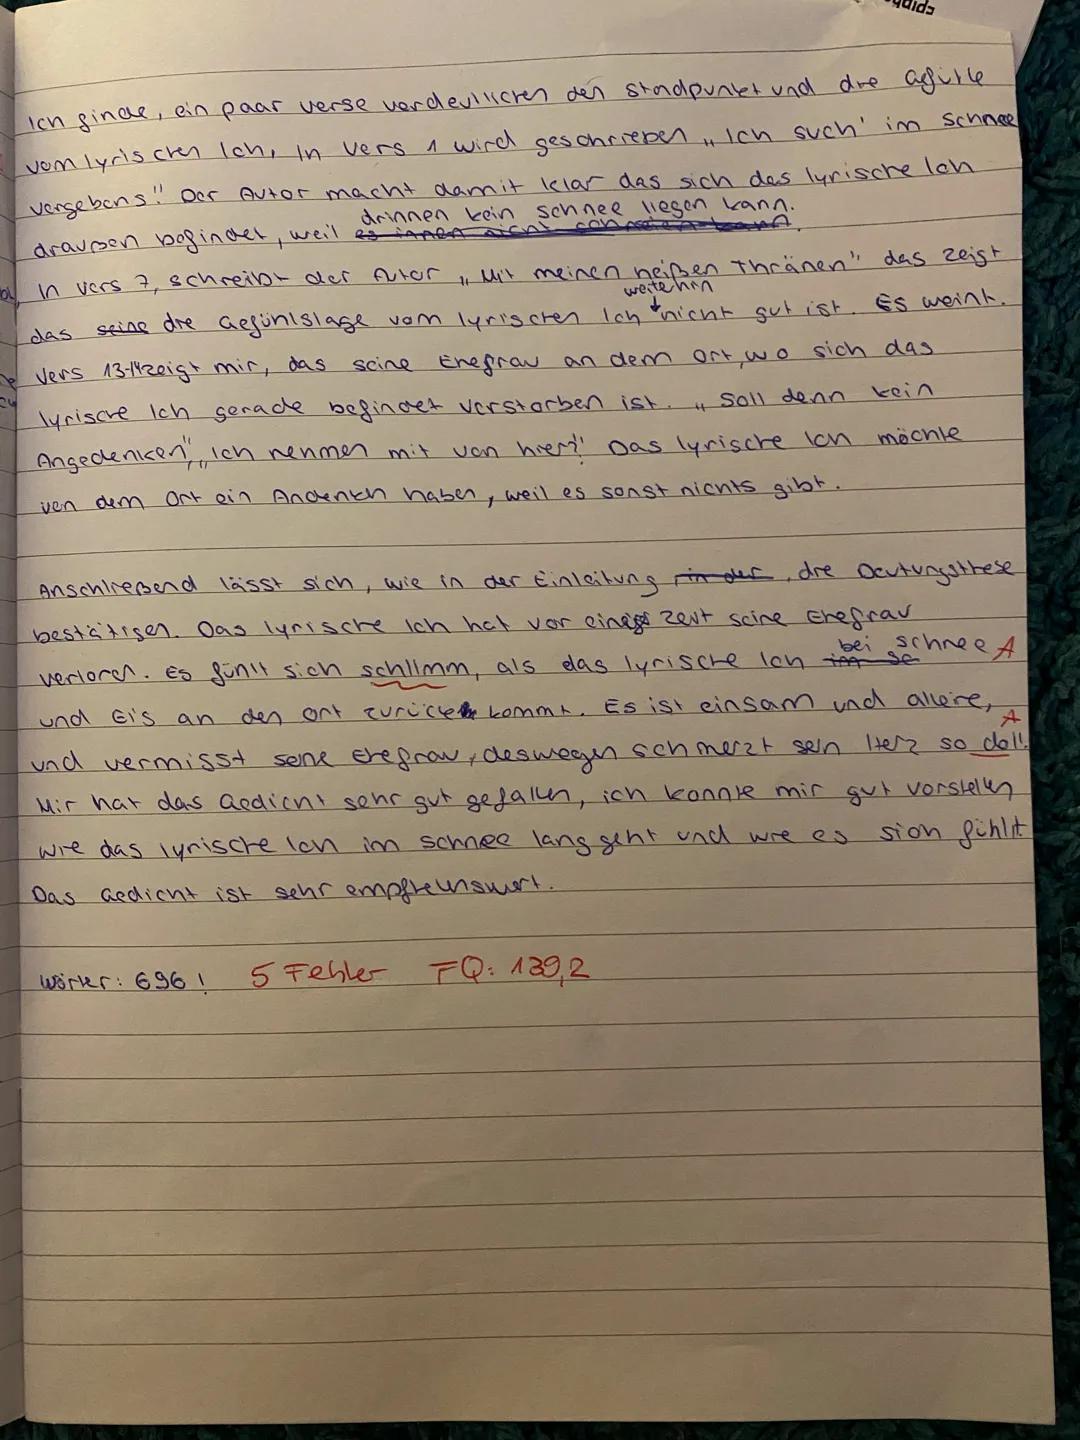 Ich finde, ein paar verse verdeutlichen den Stadpunkt und die Gefühle
vom lyrischen Ich, In Vers 1 wird geschrieben „Ich such' im Schnee
vergebens". Der Autor macht damit klar das sich das lyrische Ich
draußen befindet, weil es innen nicht schneien kann. drinnen kein schnee liegen kann.
In Vers 7, schreibt der Autor „Mit meinen heißen Thränen" das zeigt
das seine die Gefühlslage vom lyrischen Ich weiterhin nicht gut ist. Es weint.
Vers 13-14 zeigt mir, das seine Ehefrau an dem Ort, wo sich das
lyrische Ich gerade befindet verstorben ist. „Soll denn kein
Angedenken", „Ich nehmen mit von hier?" Das lyrische Ich möchte
von dem Ort ein Andenken haben, weil es sonst nichts gibt.
Anschließend lässt sich, wie in der Einleitung in der, die Deutungsthese
bestätigen. Das lyrische Ich hat vor einiger Zeit seine Ehefrau
verloren. Es fühlt sich schlimm, als das lyrische Ich bei schnee A
und Eis an den Ort zurück kommt. Es ist einsam und alleine,
A
und vermisst seine Ehefrau, deswegen schmerzt sein Herz so doll.
Mir hat das Gedicht sehr gut gefallen, ich konnte mir gut vorstellen
wie das lyrische Ich im schnee lang geht und wie es sich fühlt
Das Gedicht ist sehr empfehlnswert.
Wörter: 696! 5 Fehler FQ: 139,2